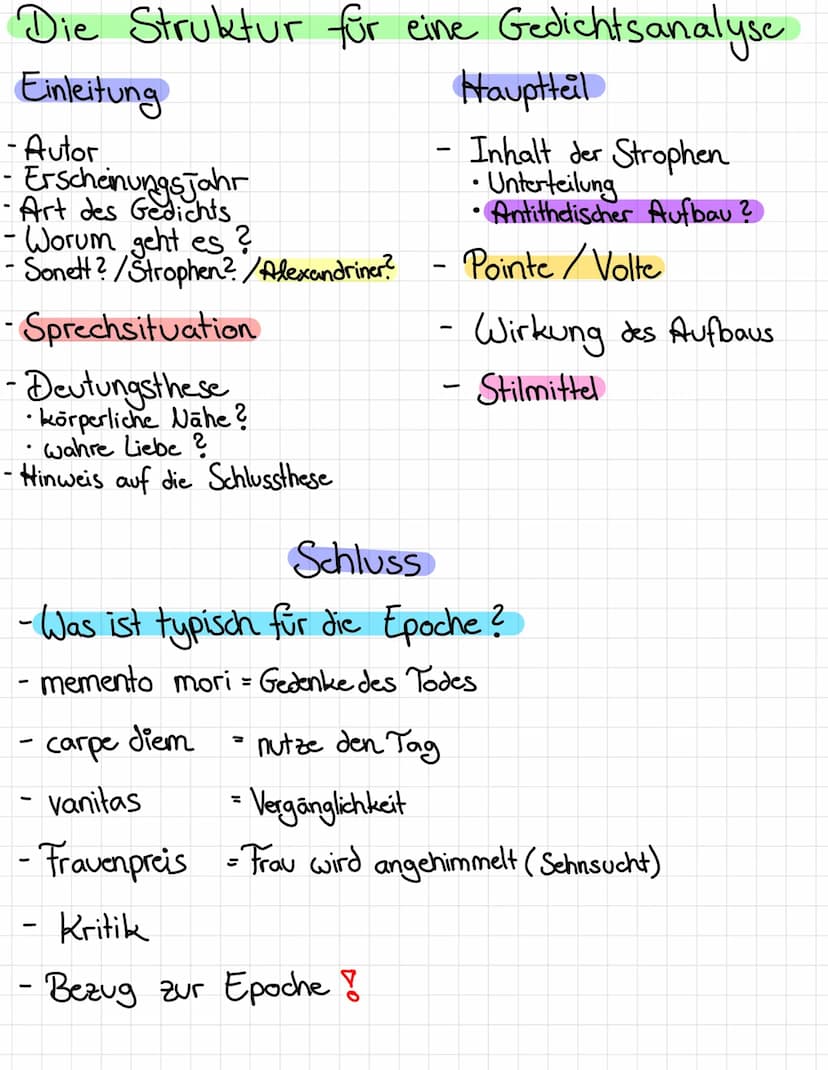 Die Struktur für eine Gedichtsanalyse
Einleitung
- Autor
- Erscheinungsjahr
- Art des Gedichts
- Worum geht es?
- Sonett? / Strophen? / Alexandriner?
- Sprechsituation
- Deutungsthese
• körperliche Nähe?
• wahre Liebe?
- Hinweis auf die Schlussthese
Hauptteil
- Inhalt der Strophen
• Unterteilung
• Antithetischer Aufbau?
- Pointe / Volte
- Wirkung des Aufbaus
- Stilmittel
Schluss
- Was ist typisch für die Epoche?
- memento mori = Gedenke des Todes
- carpe diem = nutze den Tag
- vanitas = Vergänglichkeit
- Frauenpreis = Frau wird angehimmelt (Sehnsucht)
- Kritik
- Bezug zur Epoche !